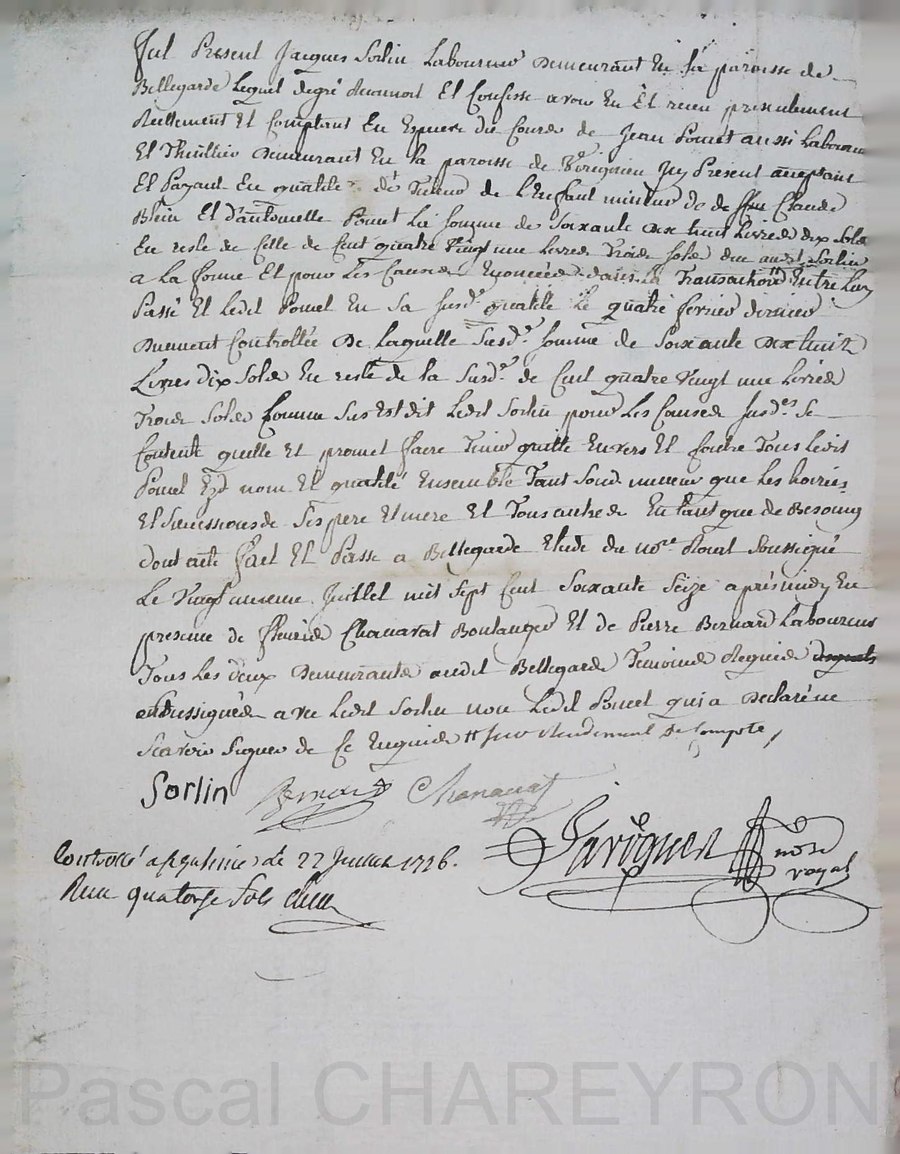 Fut Present Jacques Sorlin Laboureur Demeurant En la paroisse de
Bellegarde Lequel degré Reconnoit Et Confesse avoir Eu Et receu presentement
Reellement Et Comptant En Espuere du Cours de Jean Poncet aussi Laboureur
Et Thuillier Demeurant En la paroisse de Virignieu Icy Present acceptant
Et Payant En qualité de Tuteur de L'Enfant mineur de feu Claude
Blein Et d'antoinette Poncet La Somme de Soixante dix huit Livres dix Sols
En reste de Celle de Cent quatre Vingt une Livres Trois Sols due aud.t Sorlin
a La forme Et pour Les Causes Enoncées dans la Transaction Entre Luy
Passé Et Ledit Poncet En Sa Susd.e qualité Le quatre fevrier dernier
Duement Controllée De Laquelle Susd.e Somme de Soixante dix huit
Livres dix Sols En reste de la Susd.e de Cent quatre Vingt une Livres
Trois Sols Comme Sus Est dit Ledit Sorlin pour Les Causes Susd.es Se
Contente quitte Et promet faire Tenir quitte Envers Et Contre Tous Ledit
Poncet Esd nom Et qualité Ensemble Tant Sond. mineur que Les hoiries
Et Successions de Ses pere Et mere Et Tous autres En tant que de Besoing
dont acte fait Et Passé a Bellegarde Etude du No.re Royal Soussigné
Le Vingt unieme Juillet mil Sept Cent Soixante Seize après midy En
presence de fleurie Chanavat Boulanger Et de Pierre Bernard Laboureur
Tous Les deux Demeurants audit Bellegarde Temoins Requis
Soussignés avec Ledit Sorlin non Ledit Poncet qui a Declaré ne
Scavoir Signer de Ce Enquis // Sur Rendement de Compte,
Sorlin Bernard Chanavat
Controllé a le 22 Juillet 1776.
Reçu quatorze Sols
no.re
royal
Pascal CHAREYRON